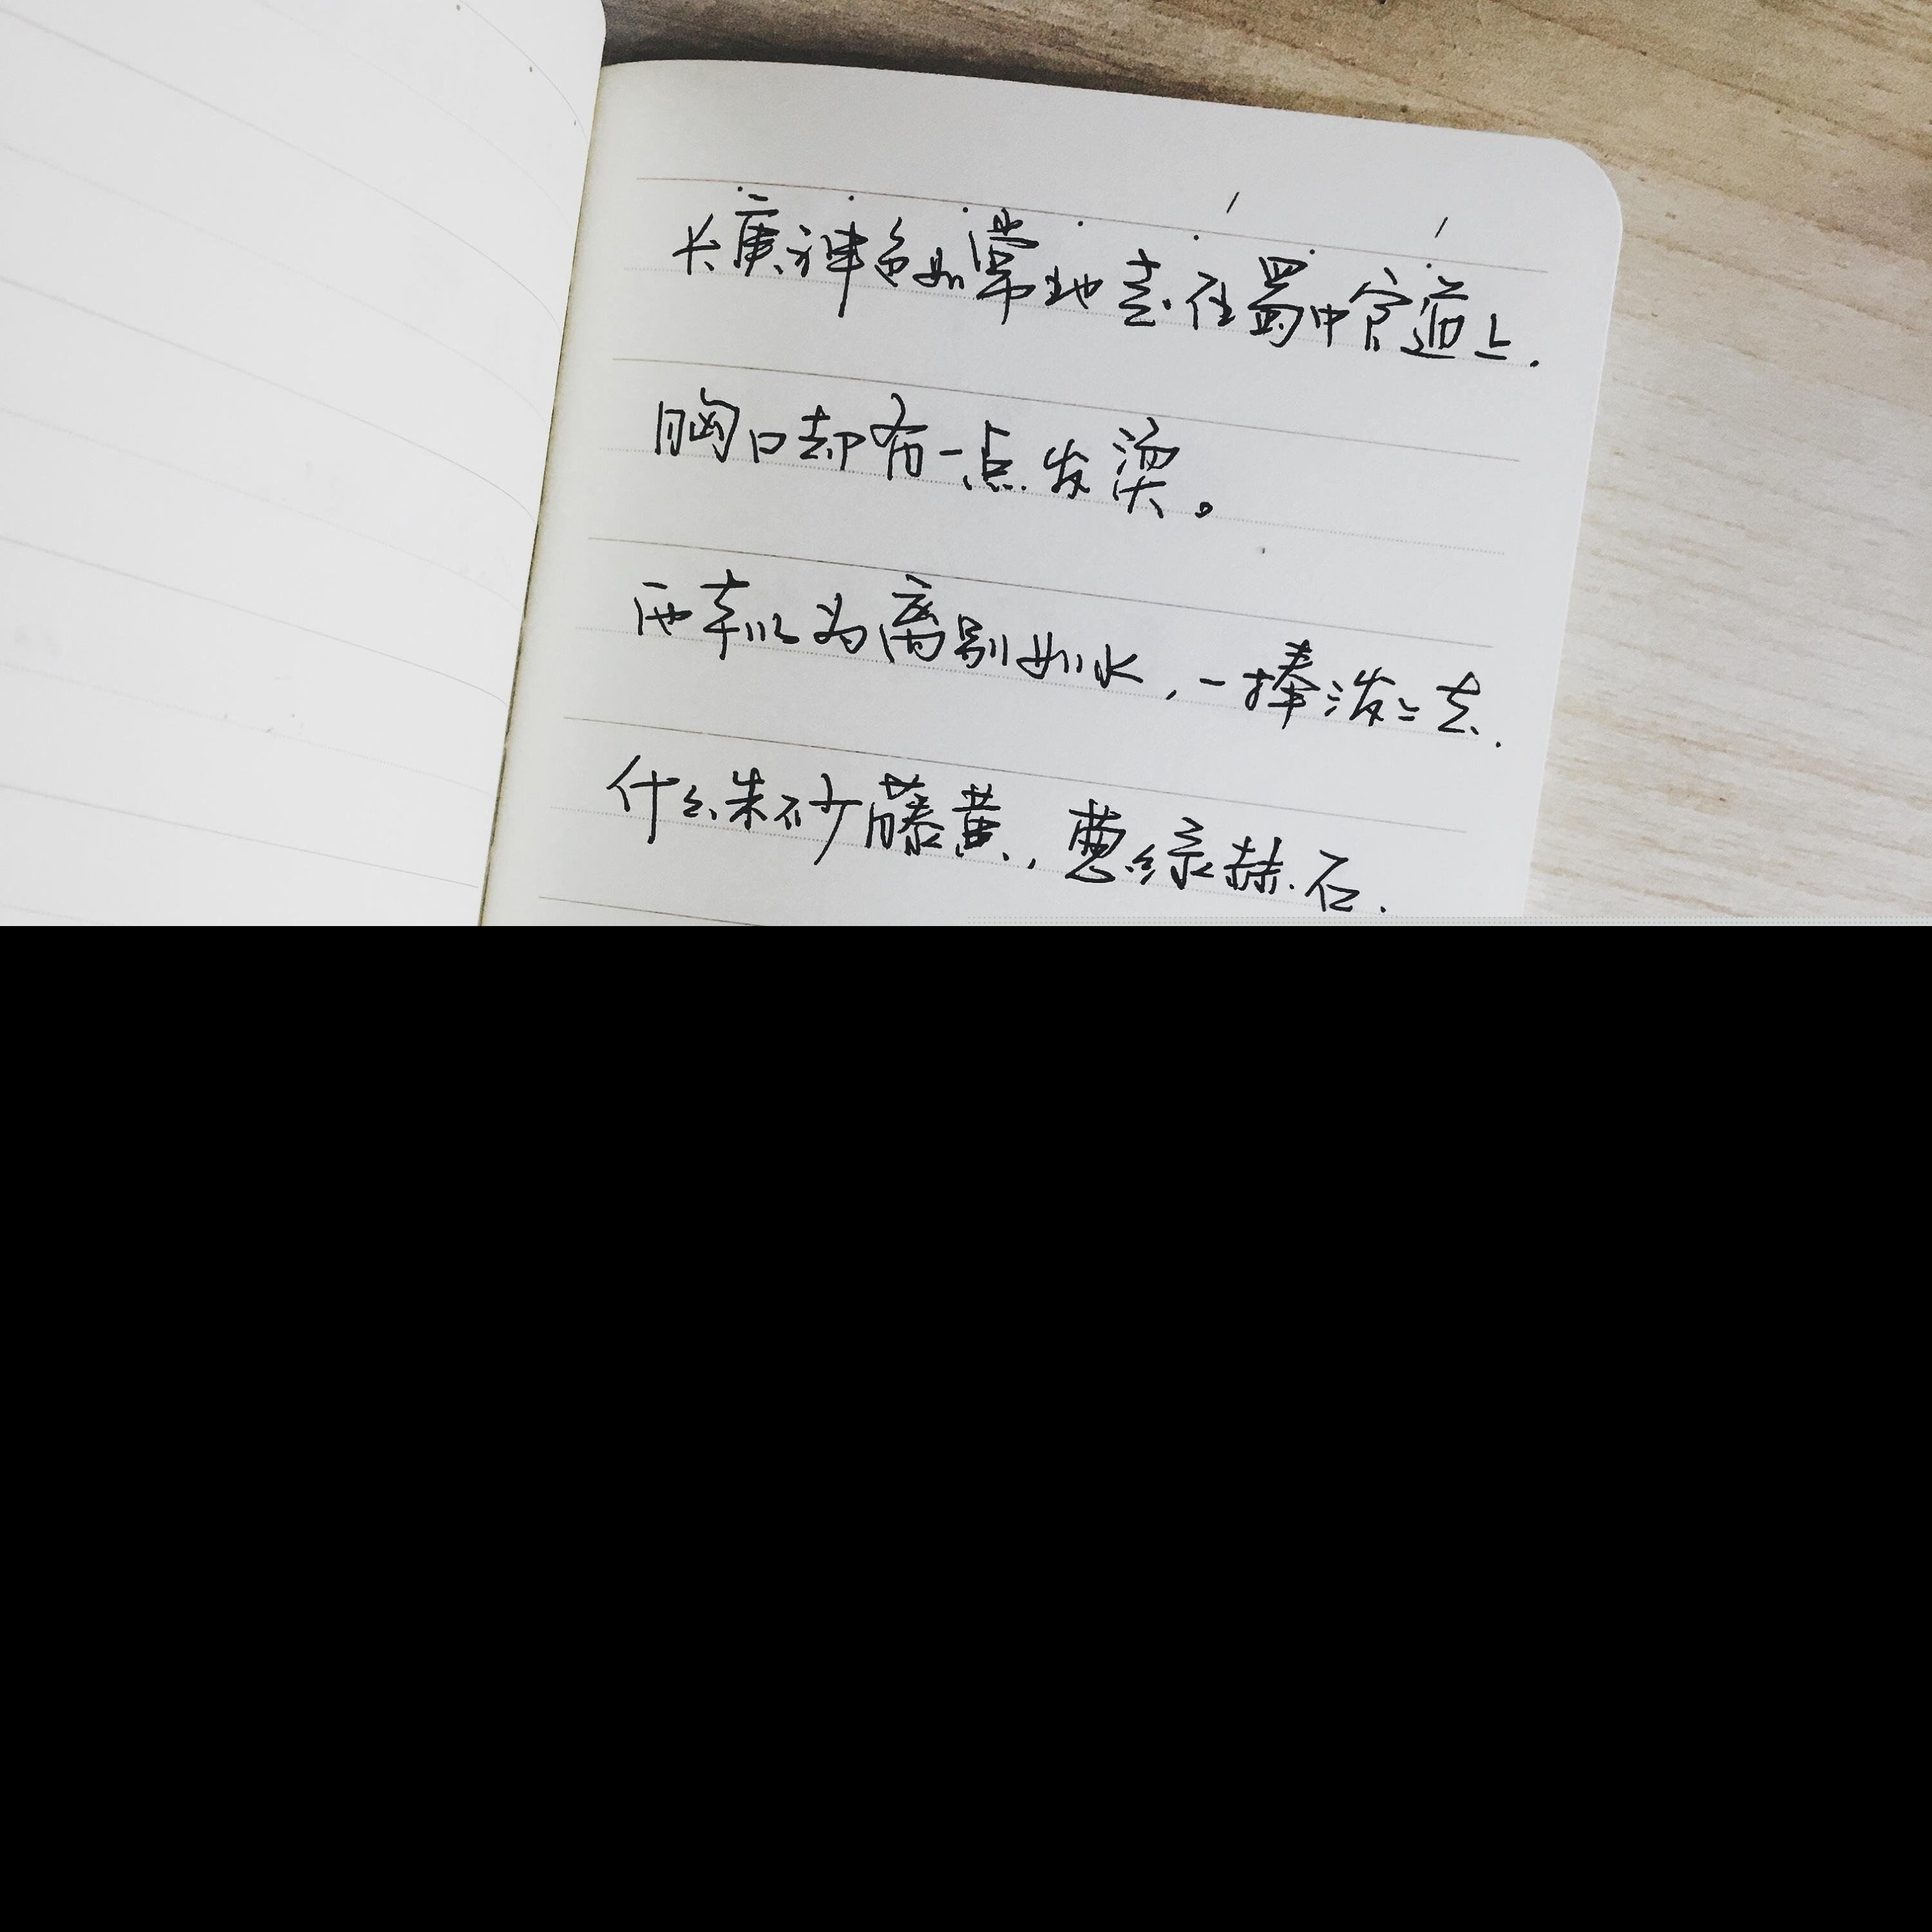 长庚神色如常地走在蜀中官道上.
胸口却有一点发烫。
两年以为离别如水,一捧泼上去.
什么朱砂藤黄,葱绿赭石.